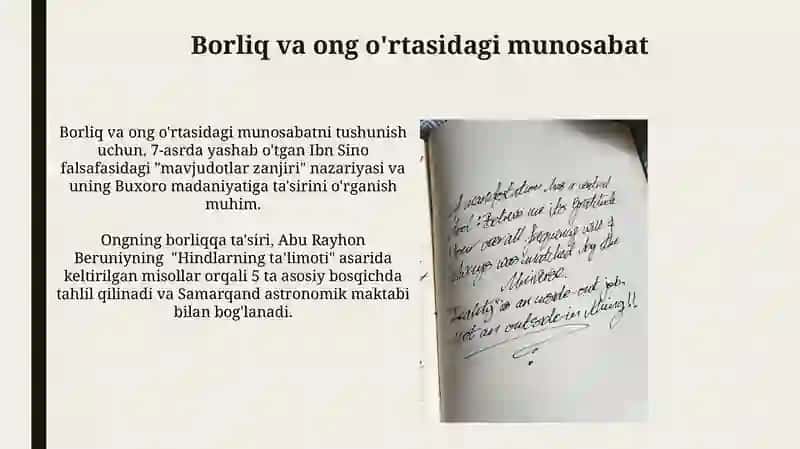 Borliq va ong o'rtasidagi munosabat
Borliq va ong o'rtasidagi munosabatni tushunish
uchun, 7-asrda yashab o'tgan Ibn Sino
falsafasidagi "mavjudotlar zanjiri" nazariyasi va
uning Buxoro madaniyatiga ta'sirini o'rganish
muhim.
Ongning borliqqa ta'siri, Abu Rayhon
Beruniyning "Hindlarning ta'limoti" asarida
keltirilgan misollar orqali 5 ta asosiy bosqichda
tahlil qilinadi va Samarqand astronomik maktabi
bilan bog'lanadi.
A manifestation has a
me its Gratitude
Your overall frequency will
always matched by the
Universe.
"Reality" is an inside-out job,
not an outside-in thing!!